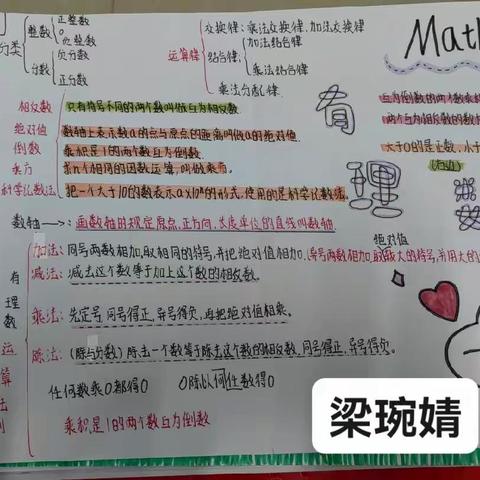 正整数
整数
0
负整数
分类
负分数
分数
正分数
运算律
交换律：乘法交换律，加法交换律
结合律：
加法结合律
乘法结合律
乘法分配律
Math
有
理
相反数
只有符号不同的两个数叫做互为相反数
绝对值
数轴上表示数a的点与原点的距离叫做a的绝对值.
倒数
乘积是1的两个数互为倒数
乘方
求n个相同的因数运算，叫做乘方.
科学记数法
把一个大于10的数表示a×10ⁿ的形式，使用的是科学记数法.
互为倒数的两个数乘积
两个互为相反数的数
大于0的是正数，小于
数轴→：画数轴的规定原点，正方向，长度单位的直线叫数轴
绝对值
有理数运算法则
加法：同号两数相加，取相同的符号，并把绝对值相加.异号两数相加，取较大的符号，并用大的
减法：减去这个数等于加上这个数的相反数.
乘法：先定号，同号得正，异号得负，再把绝对值相乘.
除法：(除与分数)除去一个数等于除去这个数的相反数，同号得正，异号得负.
任何数乘0都得0
0除以任何数得0
乘积是1的两个数互为倒数
梁琬婧